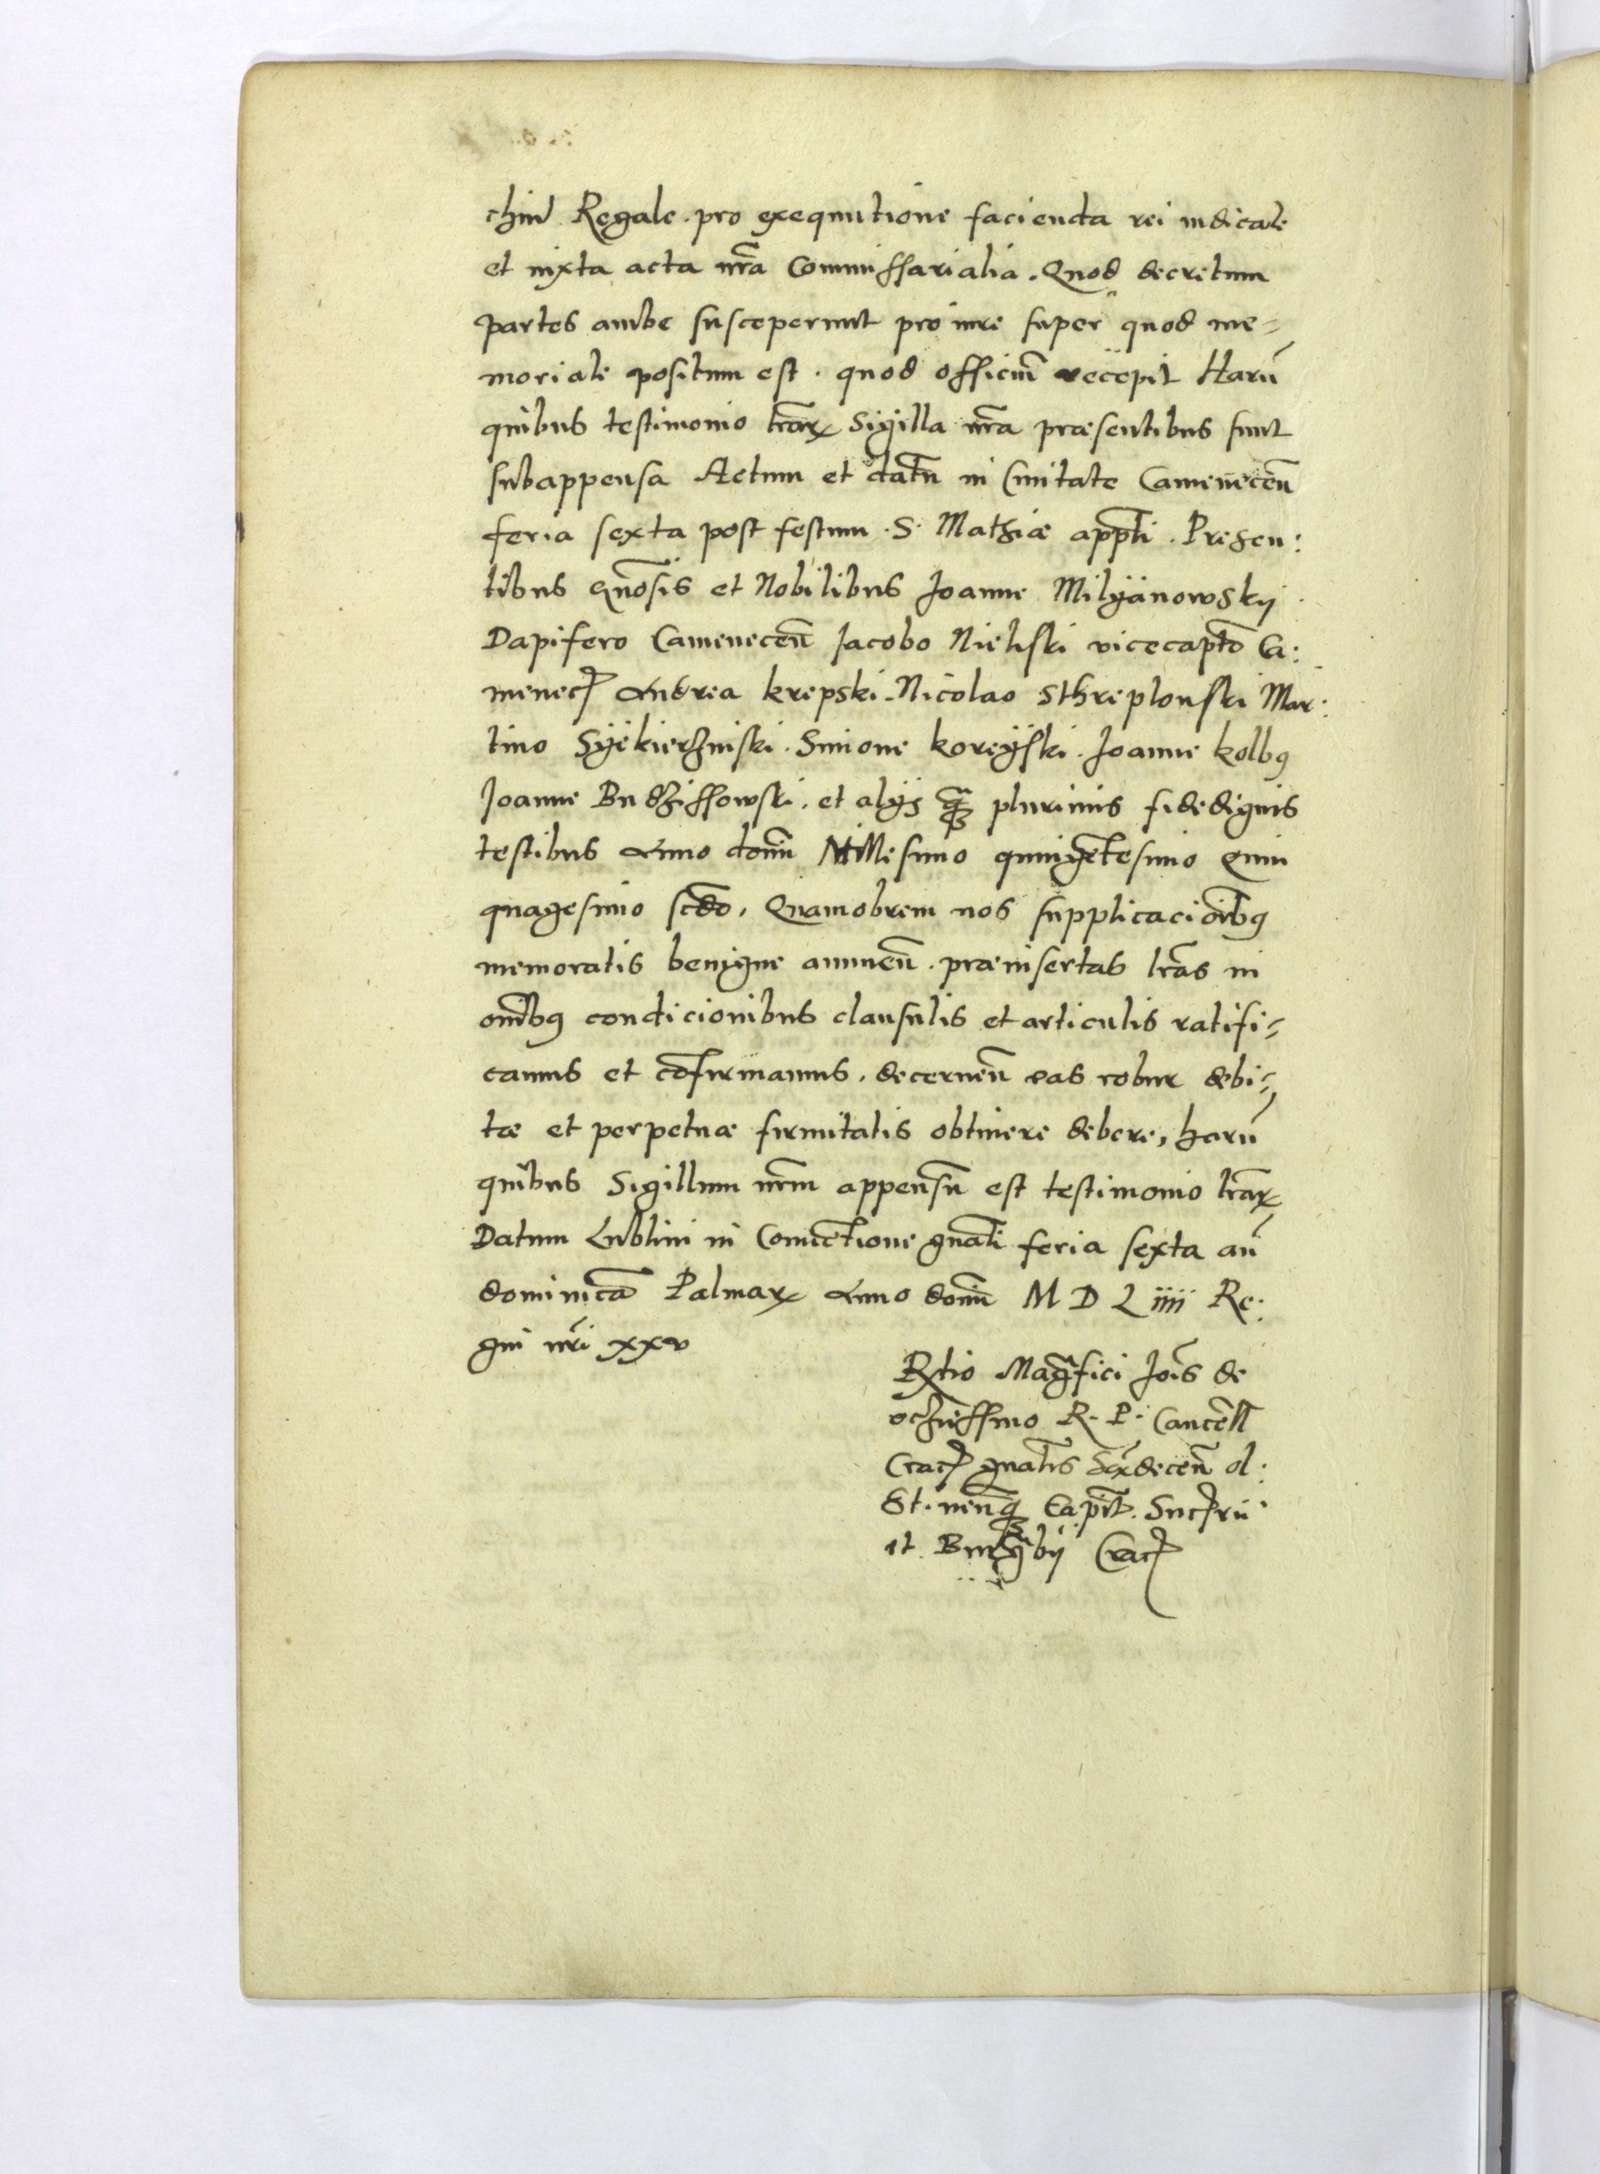 chiuu Regale. pro exequutione facienda rei iudicate
et iuxta acta nr̃a Commissarialia. Quod decretum
partes ambe susceperunt pro iure super quod me⸗
moriale positum est. quod officiũ recepit Harũ
quibus testimonio lr̃arꝝ Sigilla nr̃a præsentibus sunt
subappensa Actum et datũ in Ciuitate Camenecen̄
feria sexta post festum. S. Mathiæ app̃ti. Presen:
tibus gn̄osis et Nobilibus Joanne Milyanowskij
Dapifero Camenecen̄ Jacobo Nielifski vicecapt̃o Ca:
menec̄ Andrea krepski. Nicolao Sthreplouski Mar:
tino Syekierzinski. Simone koreyski. Joanne kolbꝰ
Joanne Budzissowski. et alijs ꝙ̃ plurimis fidedignis
testibus Anno domĩ Millesimo quingẽtesimo quin
quagesimo scd̃o. Quamobrem nos supplicaciõibꝰ
memoratis benigne annuen̄. præinsertas lr̃as in
om̃ibꝰ condicionibus clausulis et articulis ratifi⸗
camus et cõfirmamus. decernen̄ eas robur debi⸗
tæ et perpetuæ firmitatis obtinere debere, harũ
quibus Sigillum nr̃m appensũ est testimonio lr̃arꝝ
Datum Lublini in Conuẽtione gn̄ali feria sexta añ
dominicã Palmarꝝ Anno domĩ M D L iiii Re:
gni nr̃i xxv
Rl̃tio Mag̃fici Jõis de
oczhiessino R. P. Cancell̄
Crac̄ gn̄alis Sãdecen̄ ol:
St. nen̄qꝫ Capit̃. Succ̄rũ
et Burg̃bij Crac̄